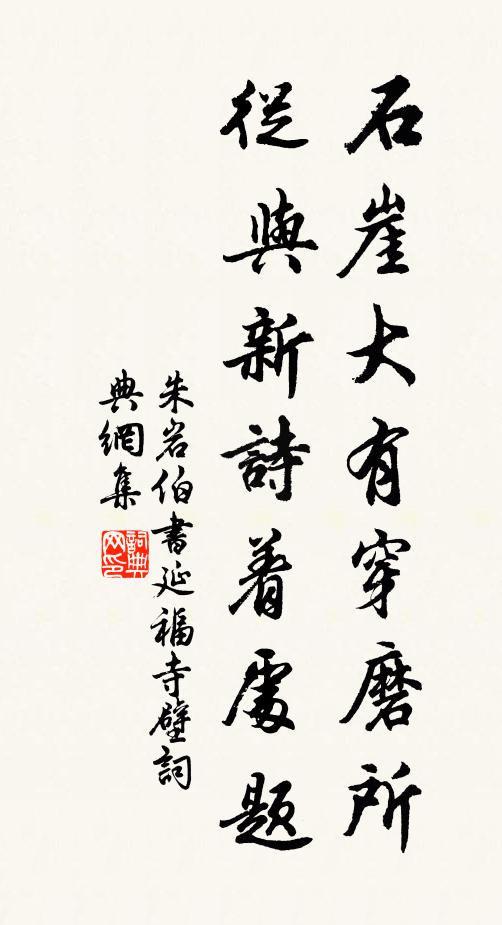 石崖大有穿磨所
從與新詩着處題
朱岩伯書延福寺壁詞
典網集
詞典
网印